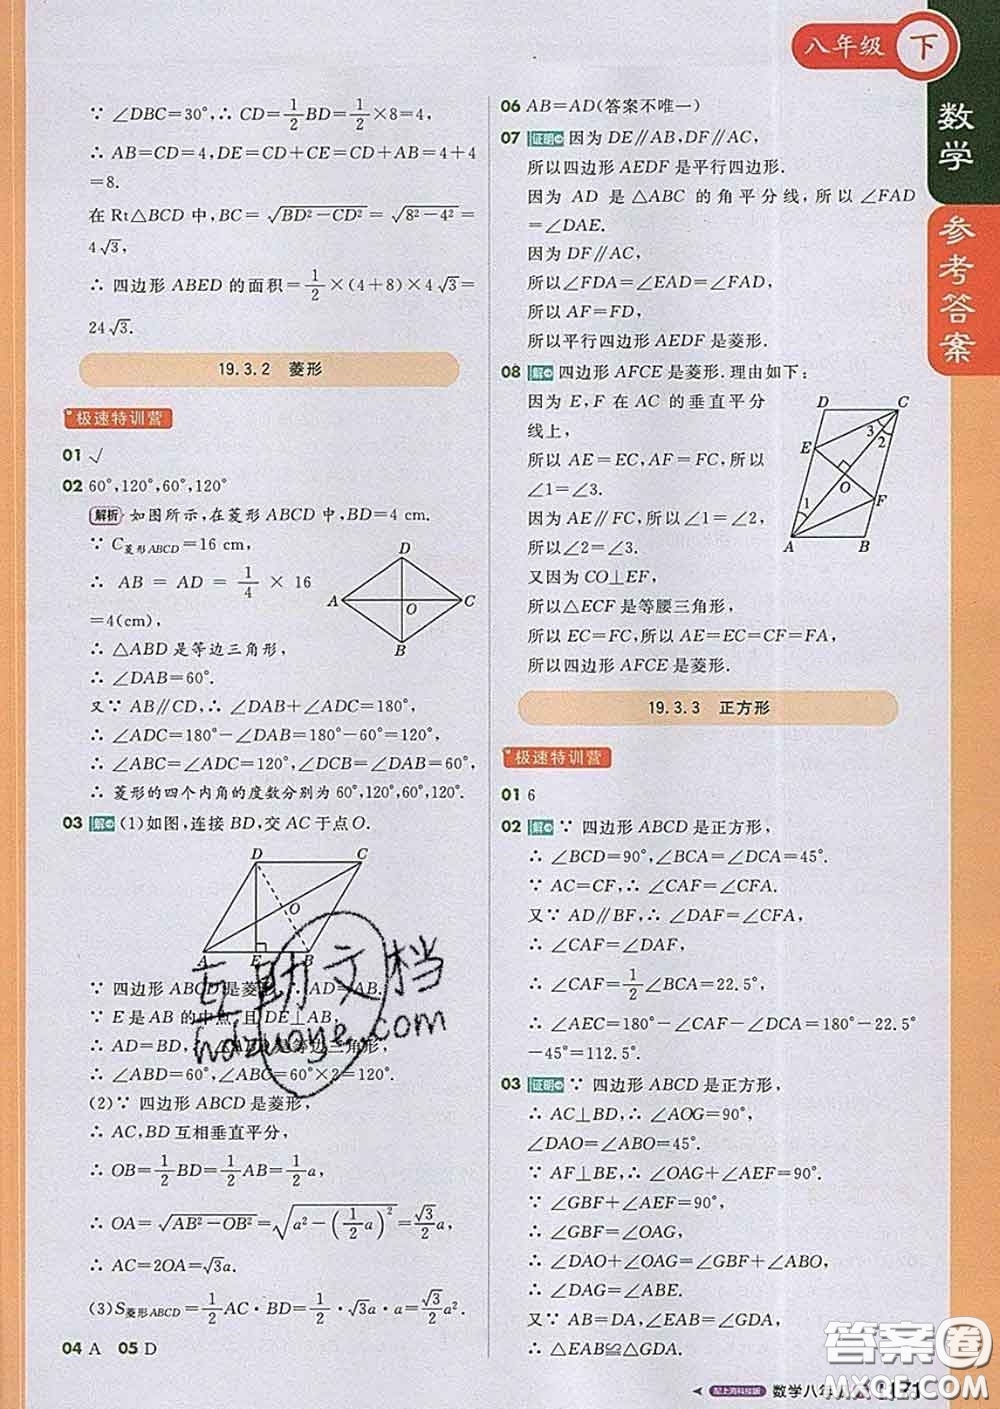 八年级 下
数学
参考答案
∵ ∠DBC=30°,∴ CD=1/2BD=1/2×8=4,
∴ AB=CD=4,DE=CD+CE=CD+AB=4+4
=8.
在 Rt△BCD 中,BC=√(BD²-CD²)=√(8²-4²)=
4√3,
∴ 四边形 ABED 的面积=1/2×(4+8)×4√3=
24√3.
19.3.2 菱形
极速特训营
01 √
02 60°,120°,60°,120°
解析 如图所示,在菱形 ABCD 中,BD=4 cm.
∵ C菱形ABCD=16 cm,
∴ AB = AD = 1/4 × 16
=4(cm),
∴ △ABD 是等边三角形,
∴ ∠DAB=60°.
又∵ AB∥CD,∴ ∠DAB+∠ADC=180°,
∴ ∠ADC=180°-∠DAB=180°-60°=120°,
∴ ∠ABC=∠ADC=120°,∠DCB=∠DAB=60°.
∴ 菱形的四个内角的度数分别为 60°,120°,60°,120°.
D
A O C
B
03 解 (1)如图,连接 BD,交 AC 于点 O.
D C
O
A E B
∵ 四边形 ABCD 是菱形,∴ AD=AB.
∵ E 是 AB 的中点,且 DE⊥AB,
∴ AD=BD,∴ △ABD 是等边三角形,
∴ ∠DAB=60°,∠ABC=60°×2=120°.
(2)∵ 四边形 ABCD 是菱形,
∴ AC,BD 互相垂直平分,
∴ OB=1/2BD=1/2AB=1/2a,
∴ OA=√(AB²-OB²)=√(a²-(1/2a)²)=√3/2a,
∴ AC=2OA=√3a.
(3)S菱形ABCD=1/2AC·BD=1/2·√3a·a=√3/2a².
04 A 05 D
06 AB=AD(答案不唯一)
07 证明 因为 DE∥AB,DF∥AC,
所以四边形 AEDF 是平行四边形.
因为 AD 是 △ABC 的角平分线,所以 ∠FAD
=∠DAE.
因为 DF∥AC,
所以∠FDA=∠EAD=∠FAD,
所以 AF=FD,
所以平行四边形 AEDF 是菱形.
08 解 四边形 AFCE 是菱形.理由如下:
因为 E,F 在 AC 的垂直平分
线上,
所以 AE=EC,AF=FC,所以
∠1=∠3.
因为 AE=AF,所以∠1=∠2,
所以∠2=∠3.
又因为 CO⊥EF,
所以△ECF 是等腰三角形,
所以 EC=FC,所以 AE=EC=CF=FA,
所以四边形 AFCE 是菱形.
D C
3 2
E
O
F
1
A B
19.3.3 正方形
极速特训营
01 6
02 解 ∵ 四边形 ABCD 是正方形,
∴ ∠BCD=90°,∠BCA=∠DCA=45°.
∵ AC=CF,∴ ∠CAF=∠CFA.
又∵ AD∥BF,∴ ∠DAF=∠CFA,
∴ ∠CAF=∠DAF,
∴ ∠CAF=1/2∠BCA=22.5°,
∴ ∠AEC=180°-∠CAF-∠DCA=180°-22.5°
-45°=112.5°.
03 证明 ∵ 四边形 ABCD 是正方形,
∴ AC⊥BD,∴ ∠AOG=90°,
∠DAO=∠ABO=45°.
∵ AF⊥BE,∴ ∠OAG+∠AEF=90°.
∵ ∠GBF+∠AEF=90°,
∴ ∠GBF=∠OAG,
∴ ∠DAO+∠OAG=∠GBF+∠ABO,
∴ ∠DAG=∠ABE.
又∵ AB=DA,∠EAB=∠GDA,
∴ △EAB≌△GDA,
互助文档
hdzuoye.com
配上海科技版 数学八年 171
答案圈
MXQE.COM